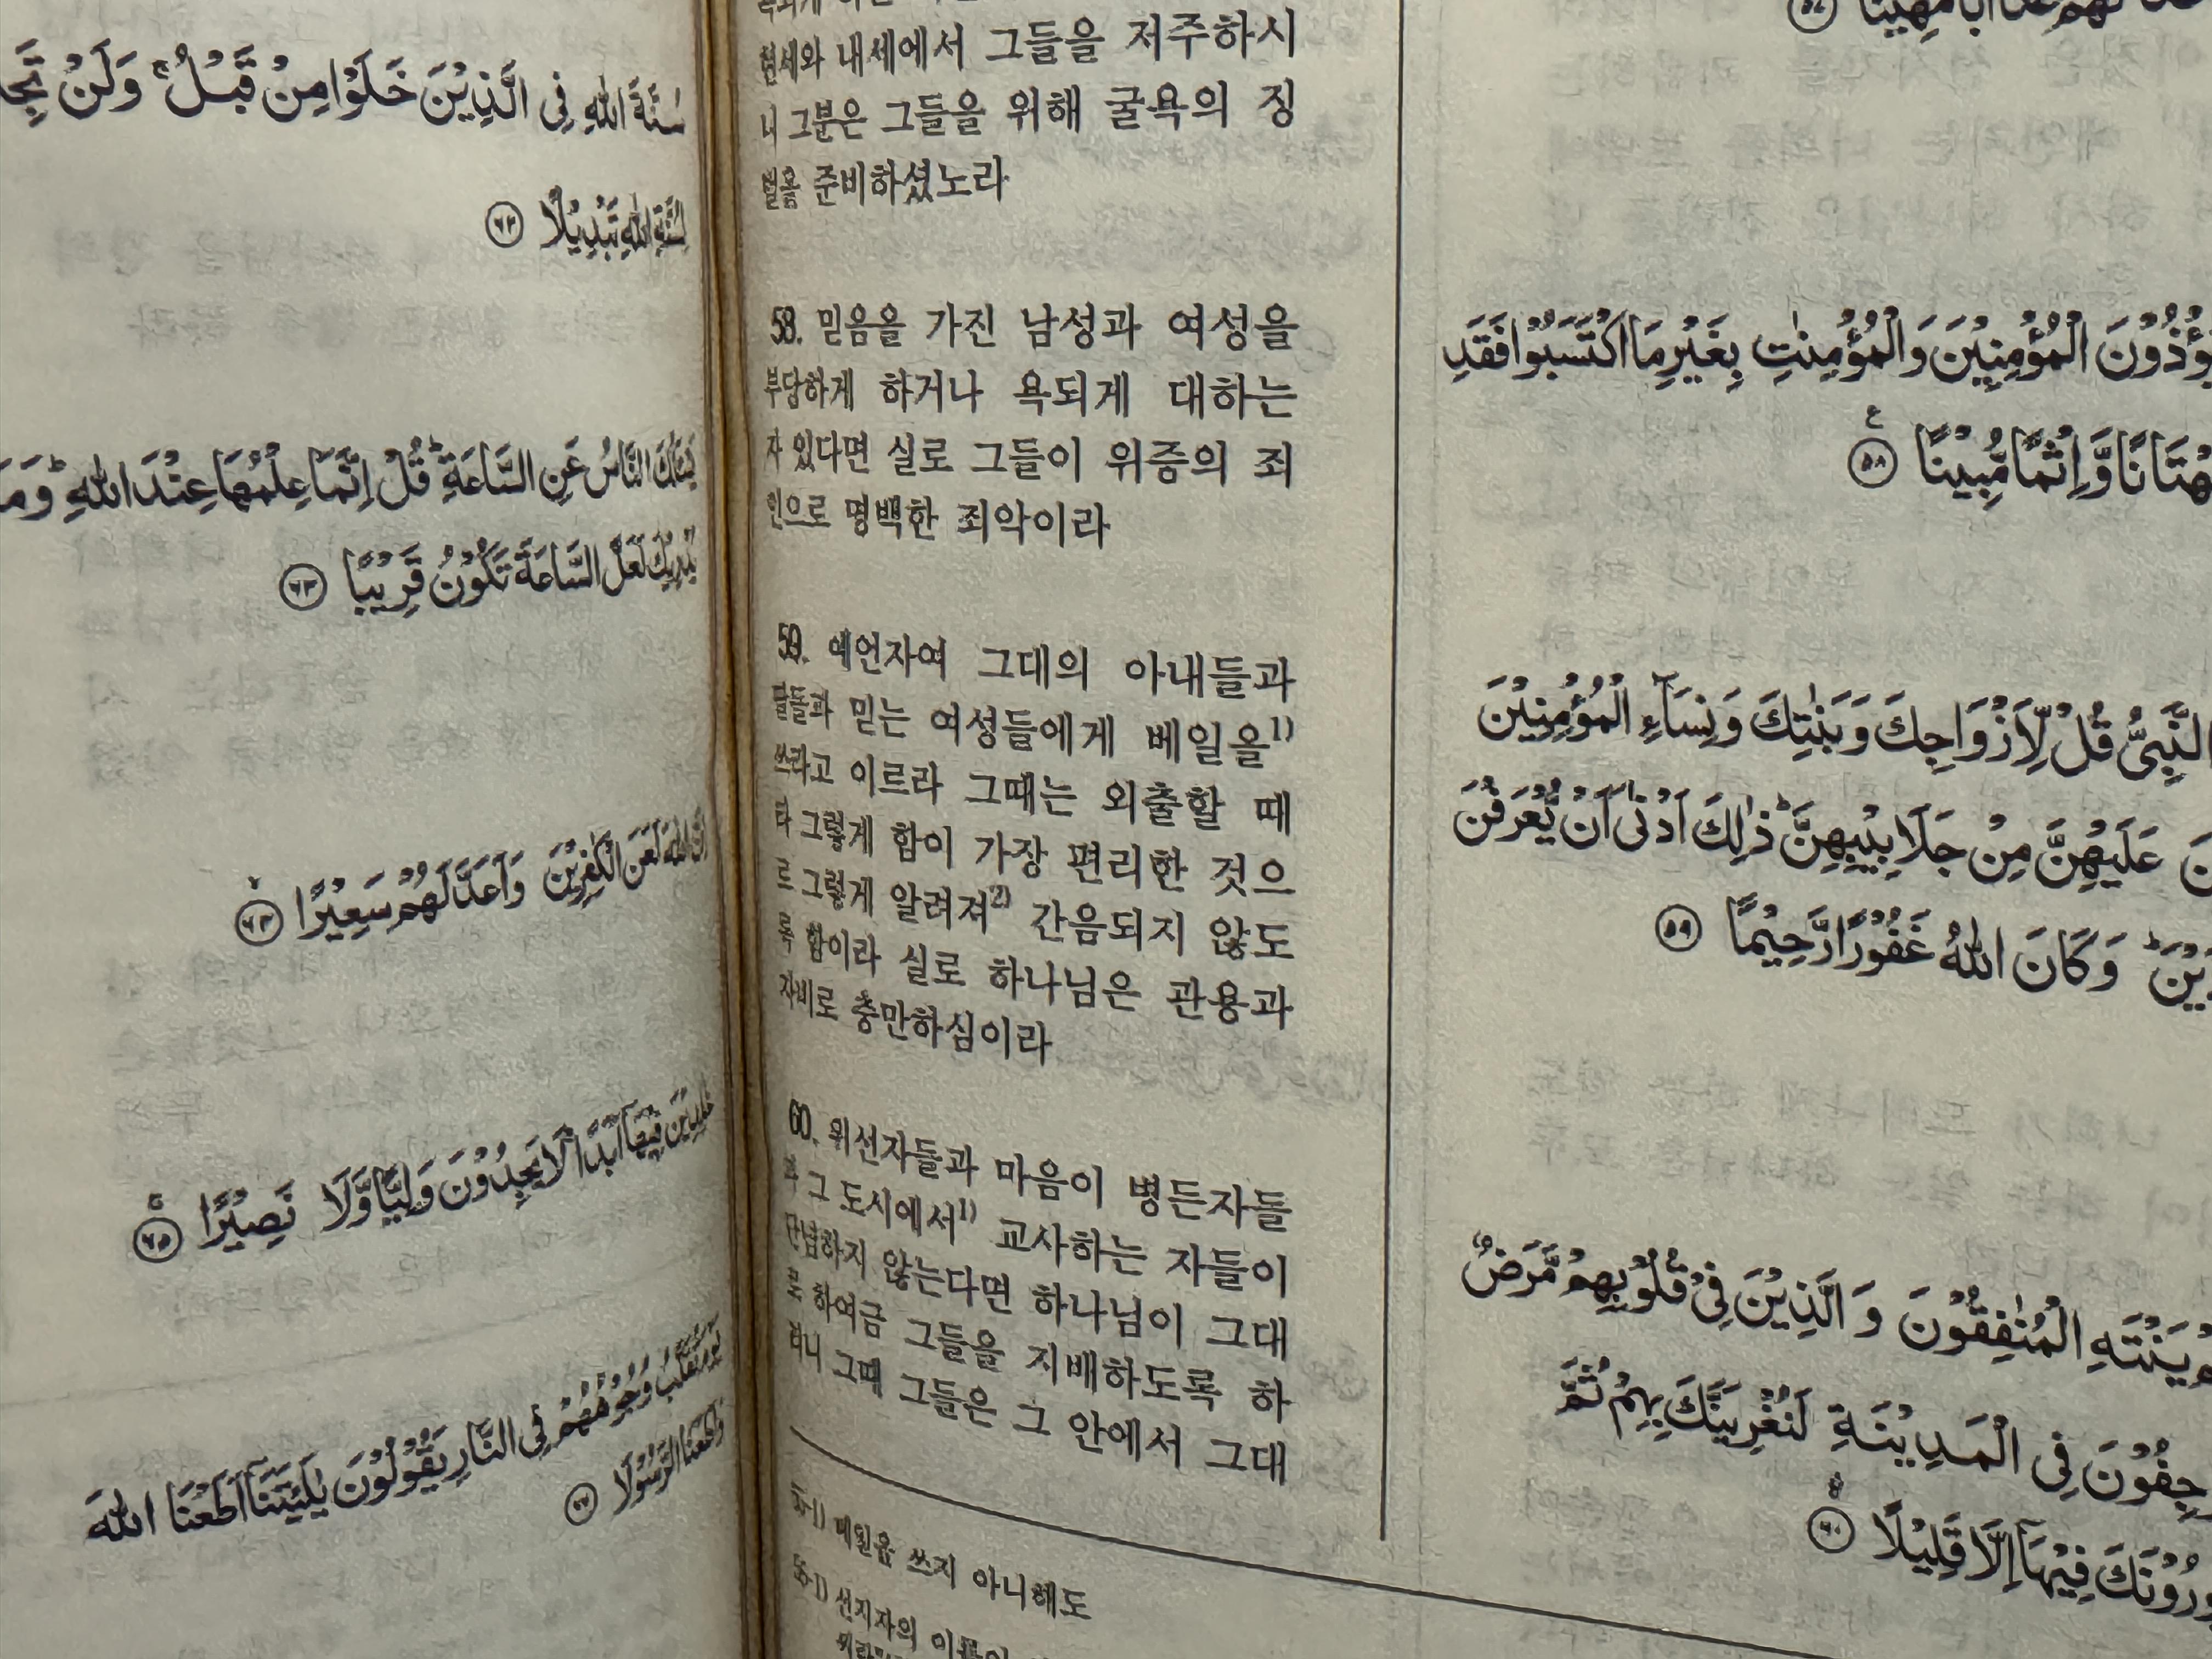 현세와 내세에서 그들을 저주하시
니 그분은 그들을 위해 굴욕의 징
벌을 준비하셨노라
58. 믿음을 가진 남성과 여성을
부당하게 하거나 욕되게 대하는
자 있다면 실로 그들이 위증의 죄
인으로 명백한 죄악이라
59. 예언자여 그대의 아내들과
딸들과 믿는 여성들에게 베일을1)
쓰라고 이르라 그때는 외출할 때
라 그렇게 함이 가장 편리한 것으
로 그렇게 알려져2) 간음되지 않도
록 함이라 실로 하나님은 관용과
자비로 충만하심이라
60. 위선자들과 마음이 병든자들
과 그 도시에서1) 교사하는 자들이
단념하지 않는다면 하나님이 그대
로 하여금 그들을 지배하도록 하
리니 그때 그들은 그 안에서 그대
베일을 쓰지 아니해도
선지자의
الْمُؤْمِنِيْنَ وَالْمُؤْمِنٰتِ بِغَيْرِ مَا اكْتَسَبُوْا فَقَدِ
وَّاِثْمًا مُّبِيْنًا ۝٥٨
النَّبِىُّ قُلْ لِّاَزْوَاجِكَ وَبَنٰتِكَ وَنِسَآءِ الْمُؤْمِنِيْنَ
عَلَيْهِنَّ مِنْ جَلَابِيْبِهِنَّ ؕ ذٰلِكَ اَدْنٰٓى اَنْ يُّعْرَفْنَ
وَكَانَ اللّٰهُ غَفُوْرًا رَّحِيْمًا ۝٥٩
يَنْتَهِ الْمُنٰفِقُوْنَ وَالَّذِيْنَ فِىْ قُلُوْبِهِمْ مَّرَضٌ
فِى الْمَدِيْنَةِ لَنُغْرِيَنَّكَ بِهِمْ ثُمَّ
فِيْهَآ اِلَّا قَلِيْلًا ۝٦٠
سُنَّةَ اللّٰهِ فِى الَّذِيْنَ خَلَوْا مِنْ قَبْلُ ۚ وَلَنْ
لِسُنَّةِ اللّٰهِ تَبْدِيْلًا ۝٦٢
النَّاسُ عَنِ السَّاعَةِ ؕ قُلْ اِنَّمَا عِلْمُهَا عِنْدَ اللّٰهِ ؕ
لَعَلَّ السَّاعَةَ تَكُوْنُ قَرِيْبًا ۝٦٣
اِنَّ اللّٰهَ لَعَنَ الْكٰفِرِيْنَ وَاَعَدَّ لَهُمْ سَعِيْرًا ۝٦٤
خٰلِدِيْنَ فِيْهَآ اَبَدًا ۚ لَا يَجِدُوْنَ وَلِيًّا وَّلَا نَصِيْرًا ۝٦٥
يَوْمَ تُقَلَّبُ وُجُوْهُهُمْ فِى النَّارِ يَقُوْلُوْنَ يٰلَيْتَنَآ اَطَعْنَا اللّٰهَ
وَاَطَعْنَا الرَّسُوْلَا ۝٦٦